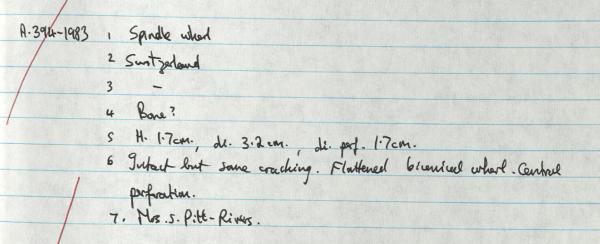 A.394-1983 1 Spindle whorl
2 Switzerland
3 -
4 Bone?
5 H. 1.7cm., di. 3.2cm., di. perf. 1.7cm.
6 Intact but some cracking. Flattened biconical whorl. Central
perforation.
7. Mrs. S. Pitt-Rivers.